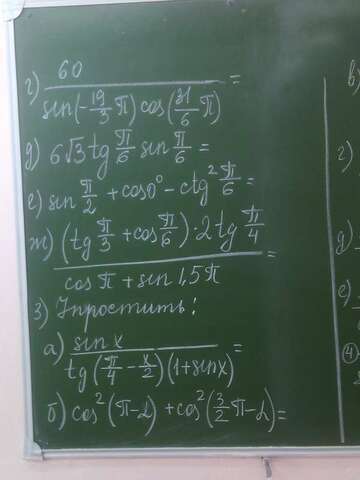 г) 60 / (sin(-19/3 π) cos(31/6 π)) =
д) 6√3 tg π/6 sin π/6 =
е) sin π/2 + cos0° - ctg² π/6 =
ж) (tg π/3 + cos π/6) · 2 tg π/4 / (cos π + sin 1,5 π) =
3) Упростить:
а) sin x / (tg(π/4 - x/2)(1+sinx)) =
б) cos²(π-α) + cos²(3/2 π-α) =
в)
г)
д)
е)
4